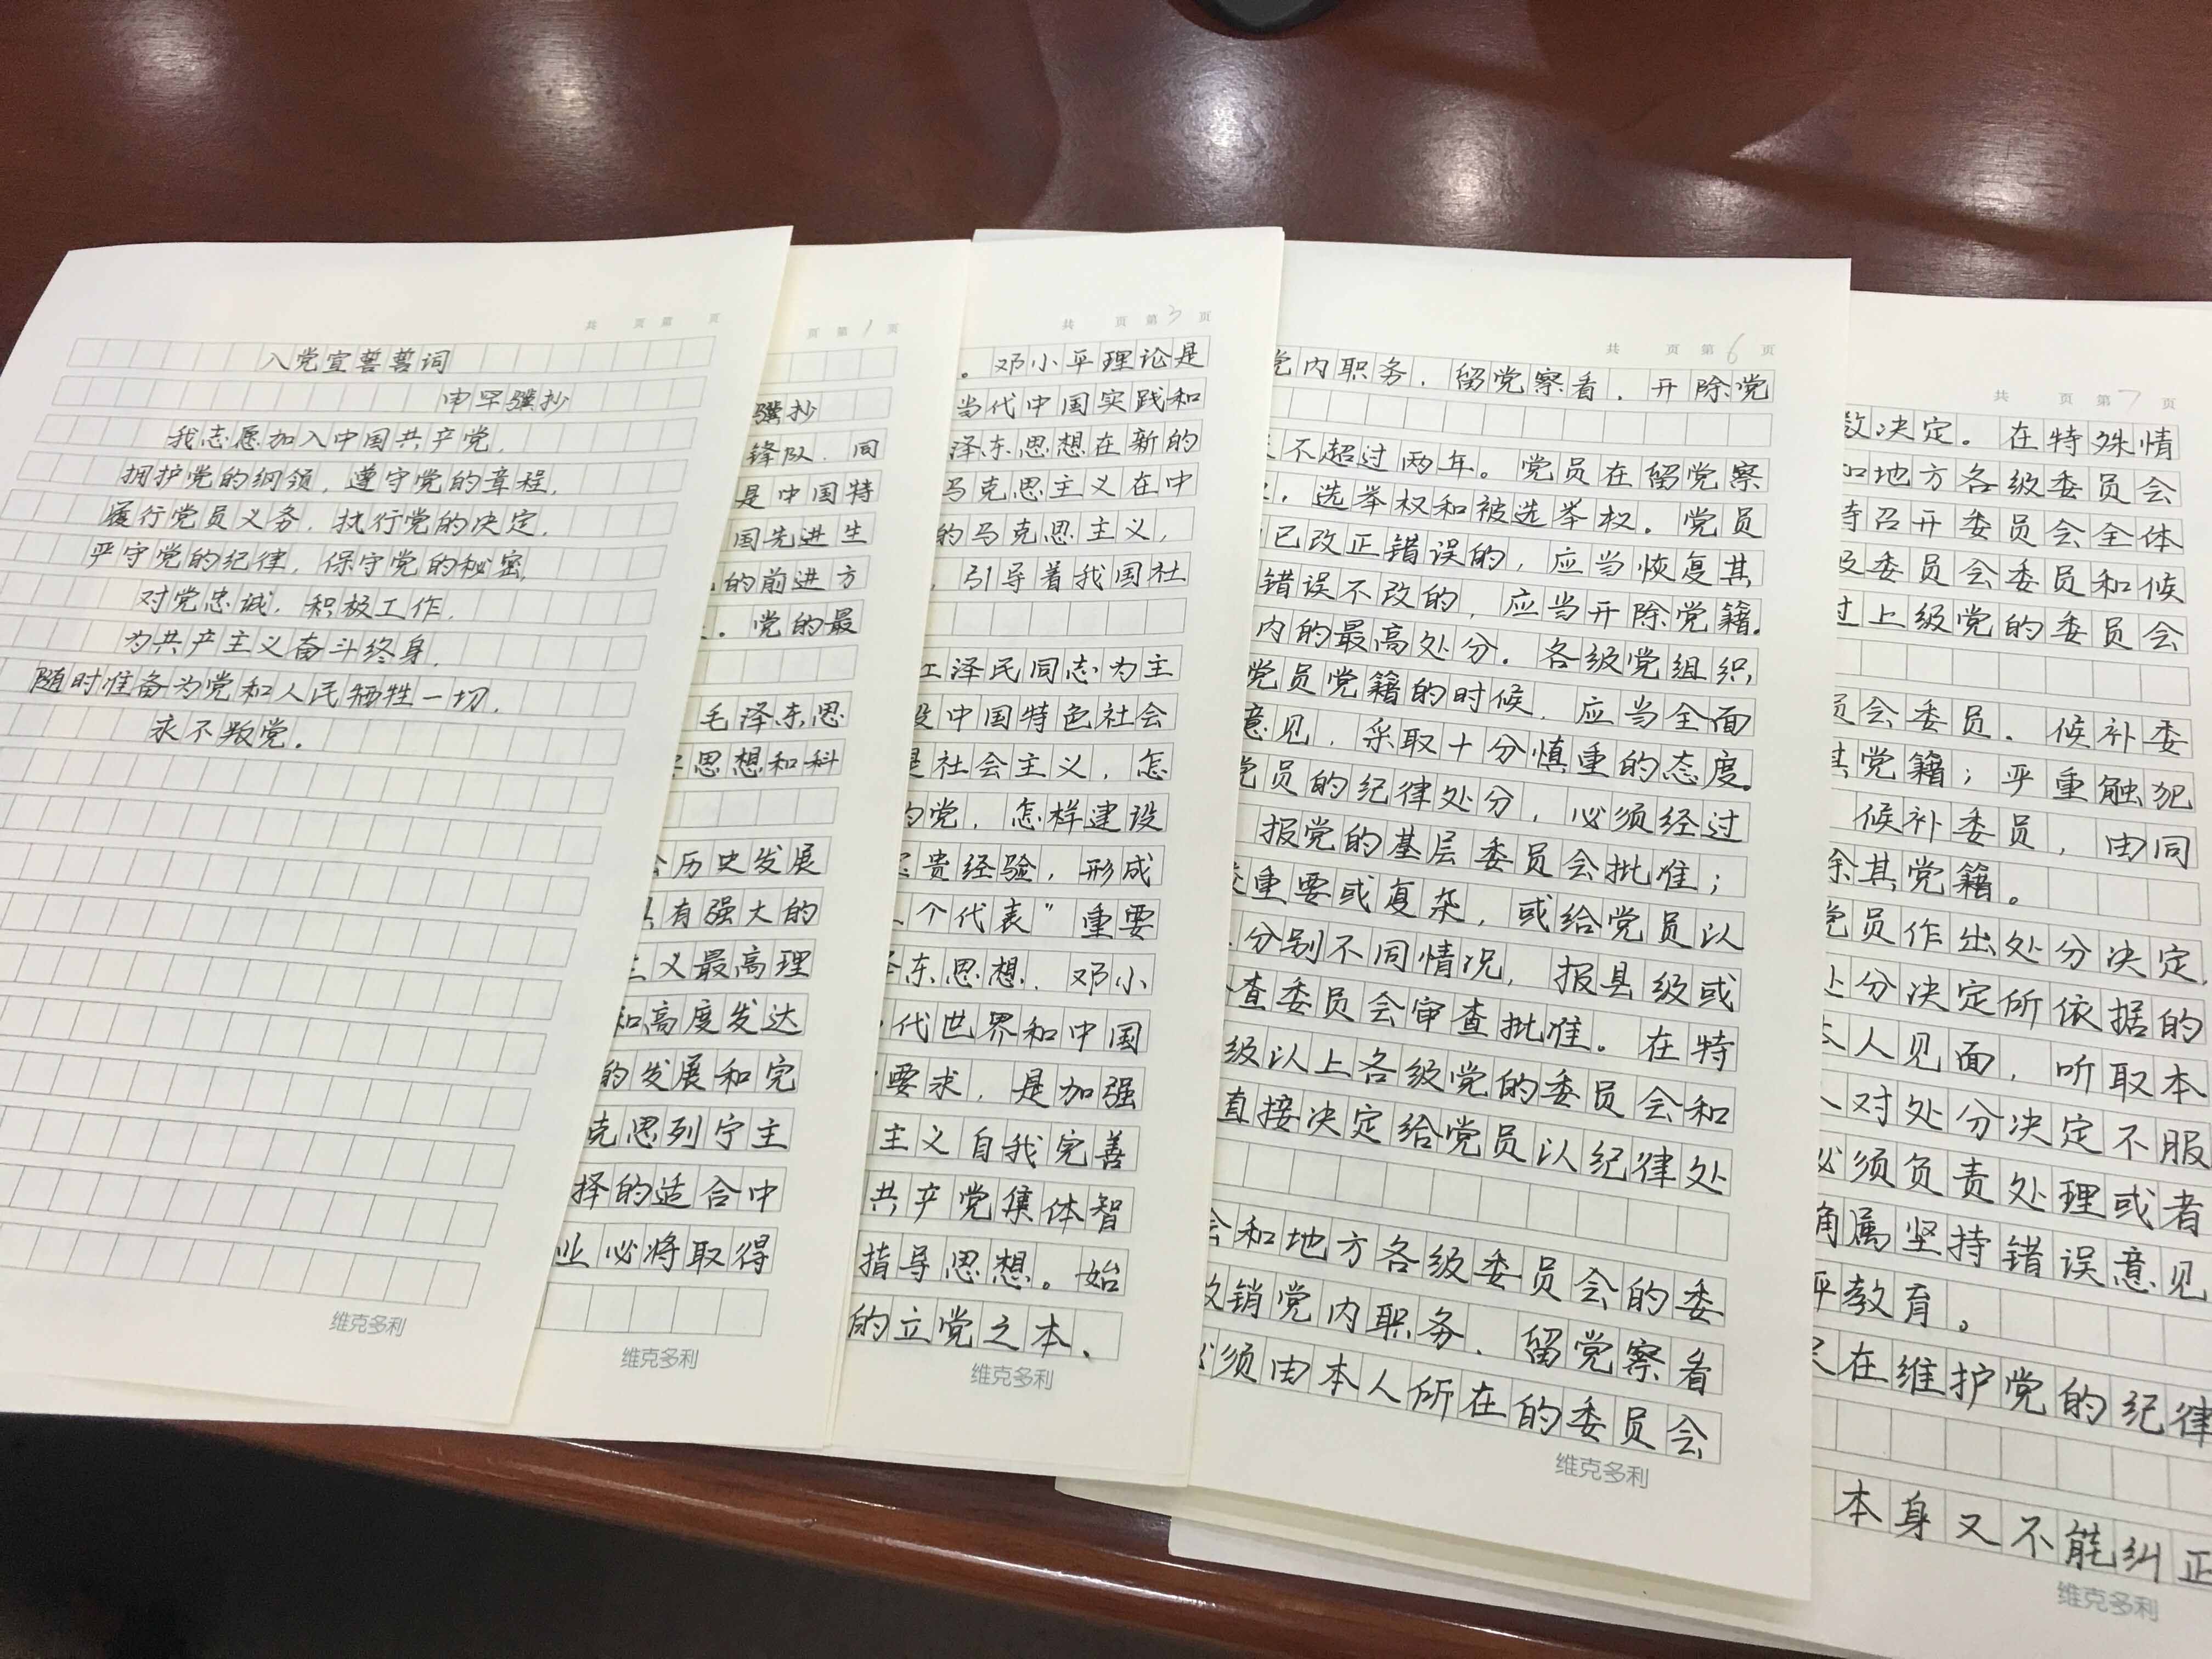 共 页 第 页
入党宣誓誓词
申罕骥抄
我志愿加入中国共产党,
拥护党的纲领,遵守党的章程,
履行党员义务,执行党的决定,
严守党的纪律,保守党的秘密,
对党忠诚,积极工作,
为共产主义奋斗终身,
随时准备为党和人民牺牲一切,
永不叛党。
维克多利
页 第1页
骥抄
锋队,同
是中国特
国先进生
的前进方
。党的最
毛泽东思
思想和科
历史发展
具有强大的
主义最高理
和高度发达
的发展和完
克思列宁主
择的适合中
业必将取得
维克多利
共 页 第3页
。邓小平理论是
当代中国实践和
泽东思想在新的
马克思主义在中
的马克思主义,
,引导着我国社
江泽民同志为主
设中国特色社会
是社会主义,怎
的党,怎样建设
贵经验,形成
个代表"重要
泽东思想、邓小
代世界和中国
要求,是加强
主义自我完善
共产党集体智
指导思想。始
的立党之本、
维克多利
共 页 第6页
党内职务、留党察看、开除党
不超过两年。党员在留党察
、选举权和被选举权。党员
已改正错误的,应当恢复其
错误不改的,应当开除党籍。
内的最高处分。各级党组织
党员党籍的时候,应当全面
意见,采取十分慎重的态度。
党员的纪律处分,必须经过
报党的基层委员会批准;
重要或复杂,或给党员以
分别不同情况,报县级或
查委员会审查批准。在特
级以上各级党的委员会和
直接决定给党员以纪律处
会和地方各级委员会的委
撤销党内职务、留党察看
必须由本人所在的委员会
维克多利
共 页 第7页
数决定。在特殊情
和地方各级委员会
待召开委员会全体
及委员会委员和候
过上级党的委员会
员会委员、候补委
其党籍;严重触犯
候补委员,由同
除其党籍。
党员作出处分决定,
处分决定所依据的
本人见面,听取本
人对处分决定不服
必须负责处理或者
确属坚持错误意见
评教育。
在维护党的纪律
本身又不能纠正
维克多利